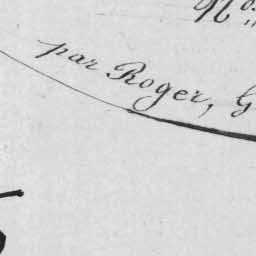 N.o
par Roger, G